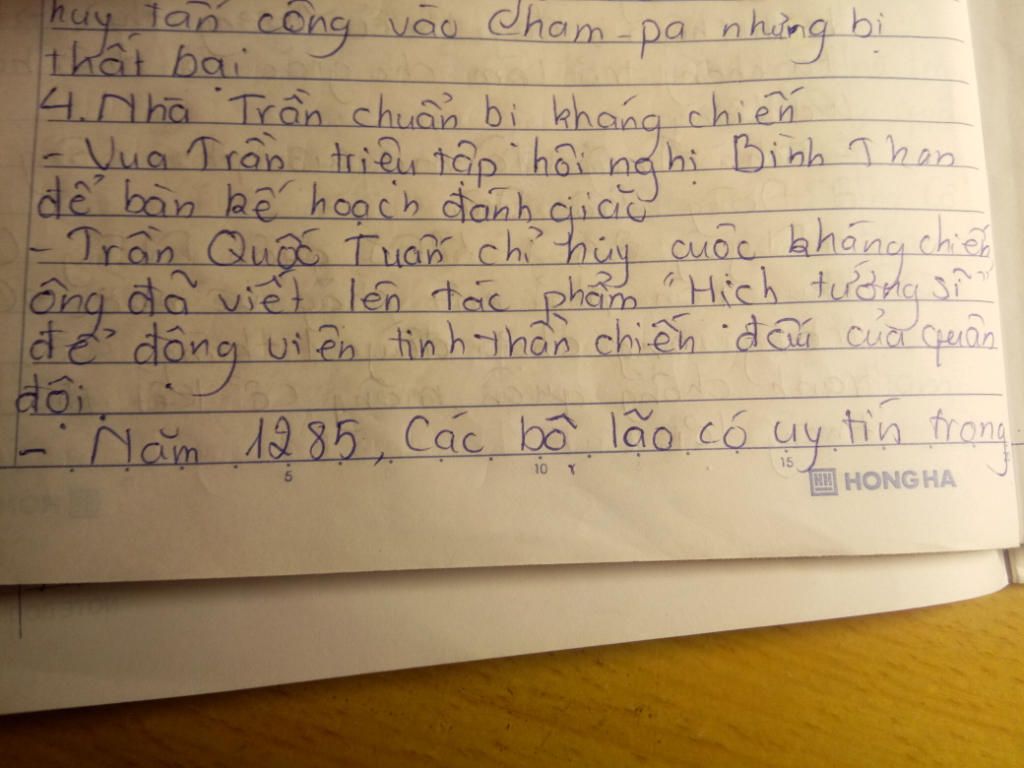 huy tấn công vào Cham-pa nhưng bị
thất bại
4. Nhà Trần chuẩn bị kháng chiến
- Vua Trần triệu tập hội nghị Bình Than
để bàn kế hoạch đánh giặc
- Trần Quốc Tuấn chỉ hùy cuộc kháng chiến
ông đã viết lên tác phẩm "Hịch tướng sĩ"
để động viên tinh thần chiến đấu của quân
đội.
- Năm 1285, Các bô lão có uy tín trong
5 10 15
HONG HA